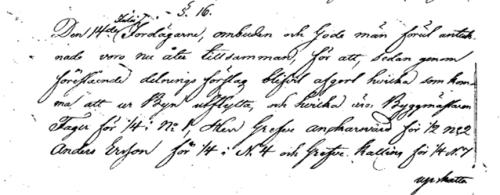 §. 16.
Den 14de Julii Jordägarne, ombuden och Gode män förut anteck-
nade voro nu åter tillsamman, för att, sedan genom
föreslående delnings förslag blifvit afgort hvilka som kom-
ma att ur Byn utflytta, och hvilka äro: Byggmästaren
Fager för 1/4 i No 1, Herr Grefve Anckarsvärd för 1/2 No 2
Anders Ersson för 1/4 i N. 4 och Grefve Kalling för 1/4 N. 7
uppskatta